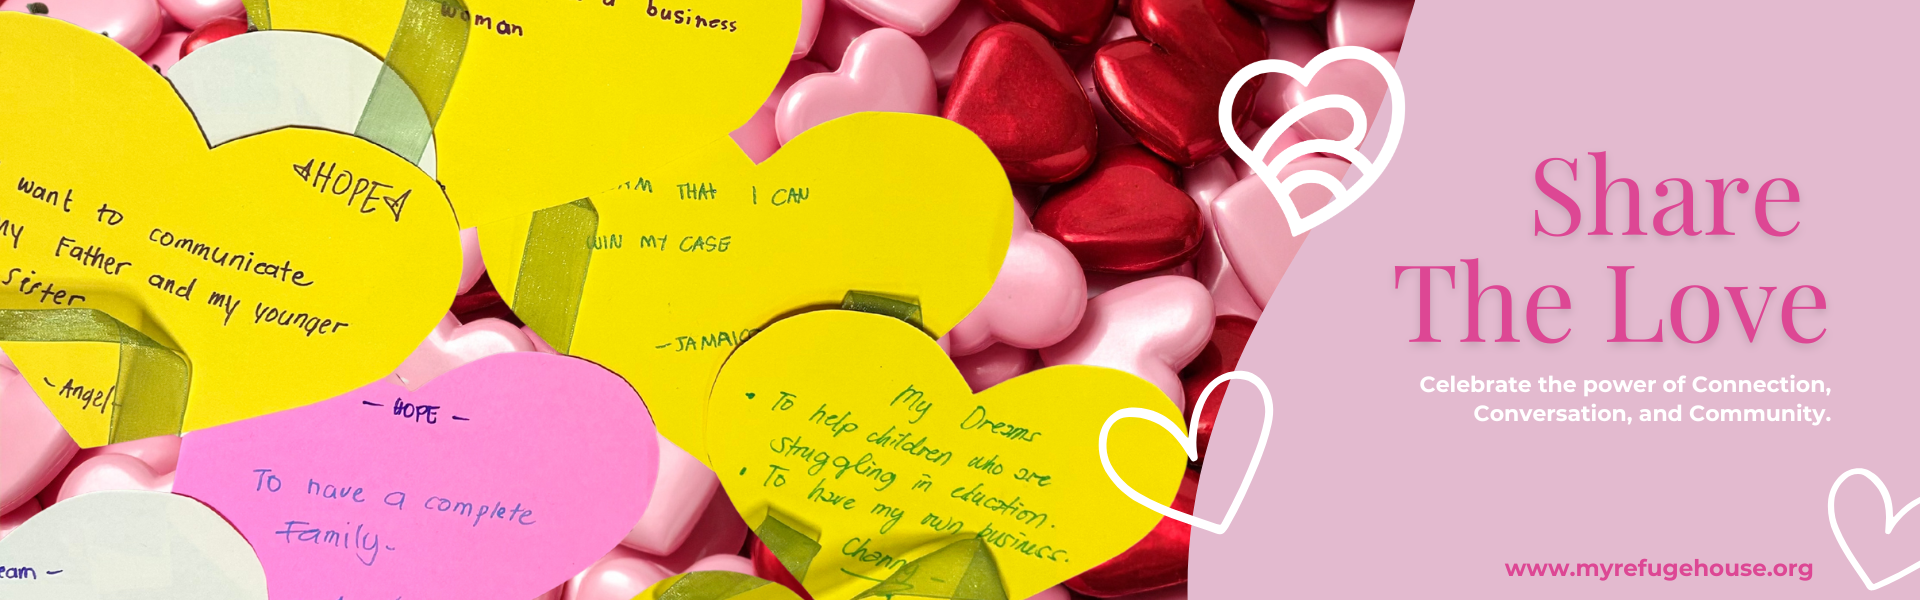 a business
woman
HOPE
want to communicate
my Father and my younger
sister
- Angel -
THAT I CAN
WIN MY CASE
- HOPE -
To have a complete
Family.
My Dreams
• To help children who are
struggling in education.
• To have my own business.
Share
The Love
Celebrate the power of Connection,
Conversation, and Community.
www.myrefugehouse.org